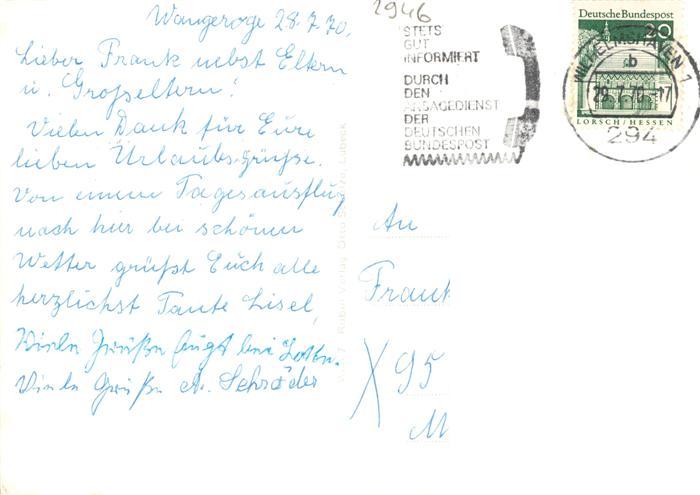 Wangeroge 28.7.70.
Lieber Frank nebst Eltern
u. Großeltern!
Vielen Dank für Eure
lieben Urlaubsgrüße.
Von einem Tagesausflug
nach hier bei schönem
Wetter grüßt Euch alle
herzlichst Tante Lisel,
Viele Grüße fügt bei
Viele Grüße A. Schröder
2946
STETS
GUT
INFORMIERT
DURCH
DEN
ANSAGEDIENST
DER
DEUTSCHEN
BUNDESPOST
Deutsche Bundespost
20
LORSCH/HESSEN
WILHELMSHAVEN 1
b
29.7.70-17
294
Rubin Verlag Otto Lübeck
An
Frank
X 95
M